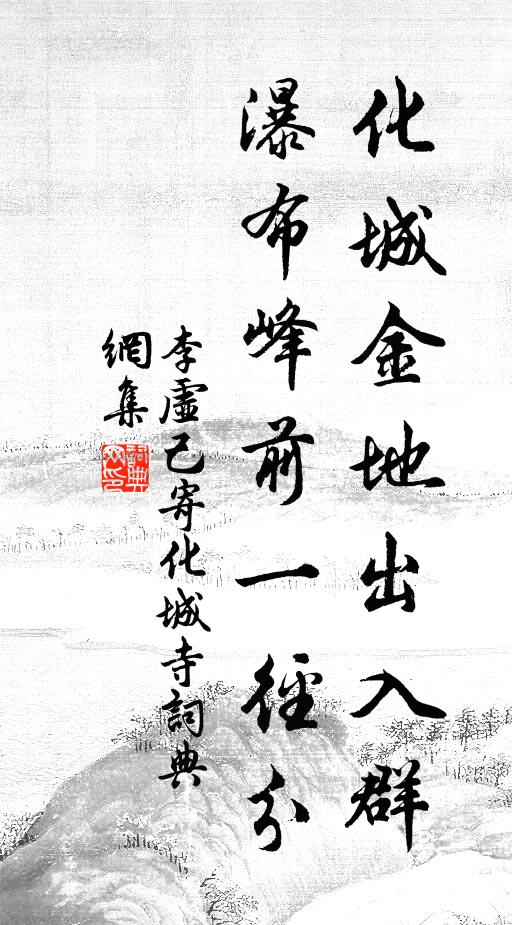 化城金地出入群
瀑布峰前一徑分
李虛己寄化城寺詞典
網集
詞典網印